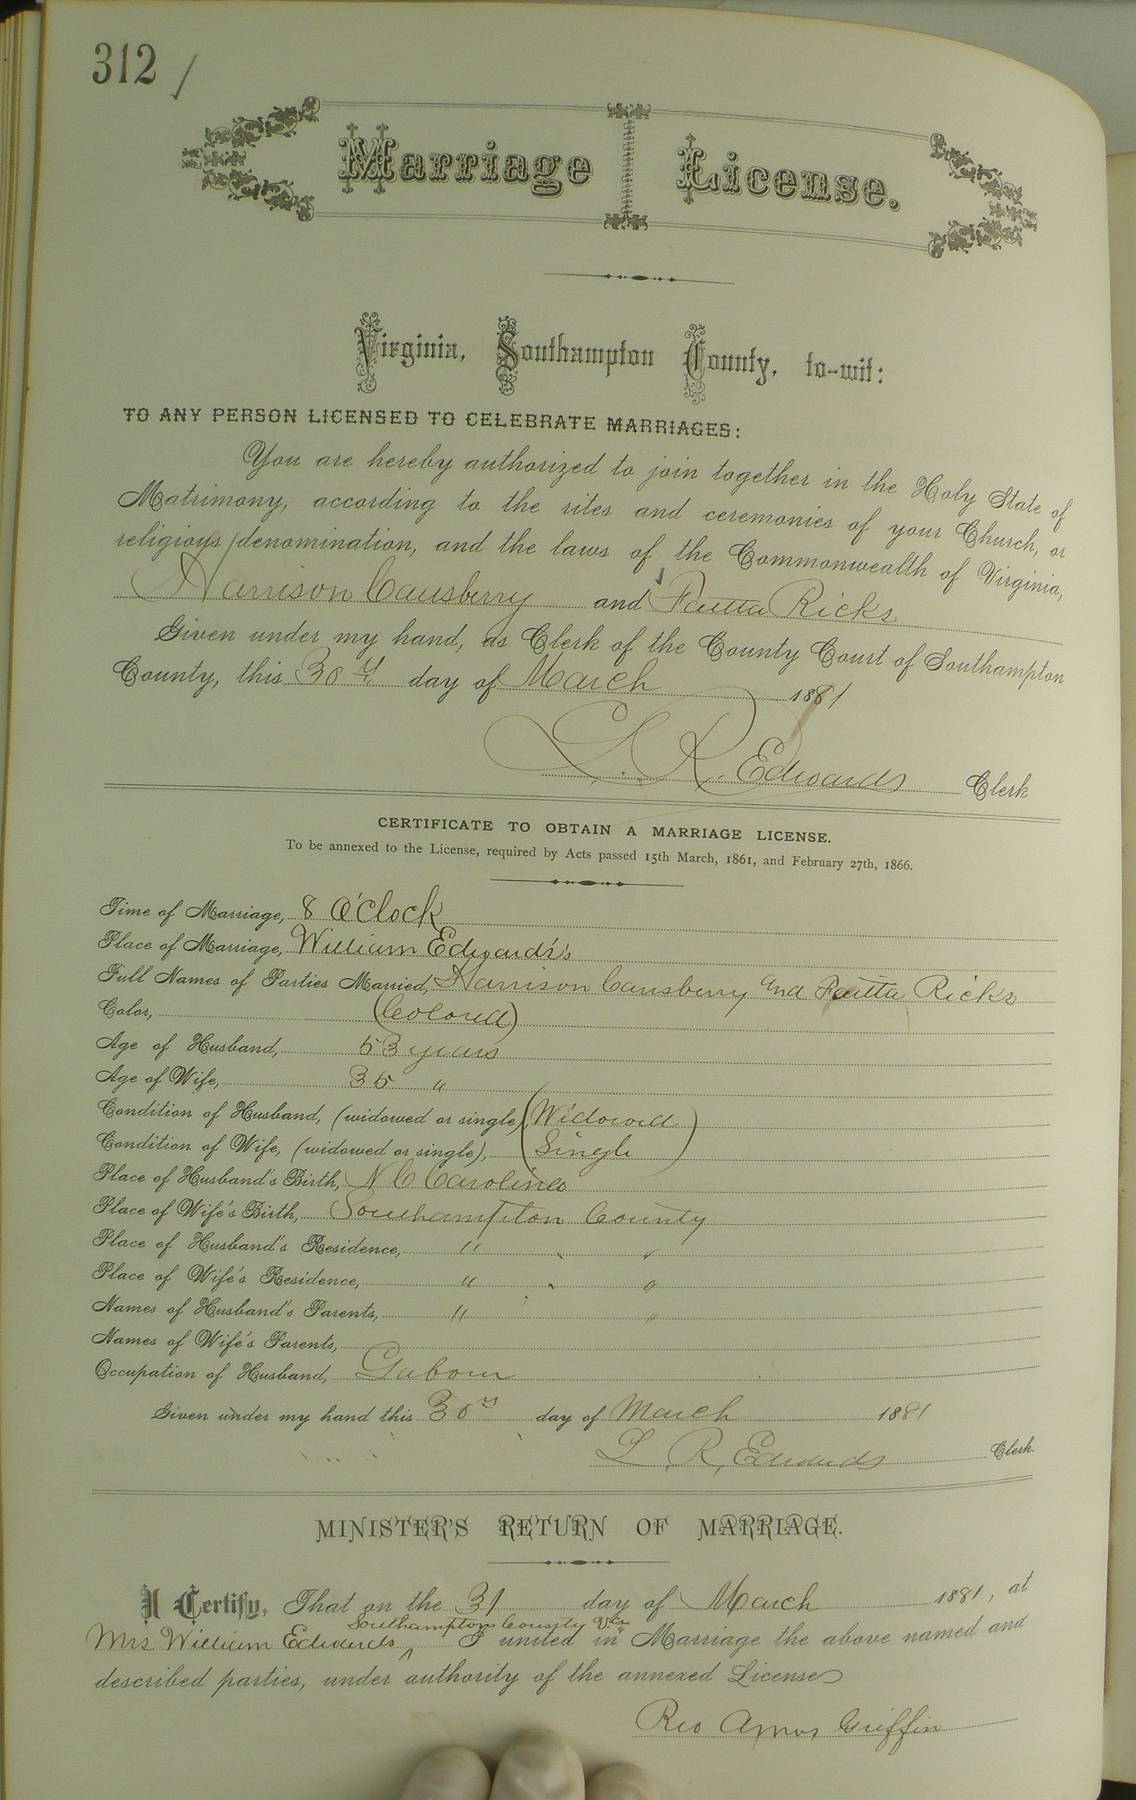 312 /
Marriage License.
Virginia, Southampton County, to-wit:
TO ANY PERSON LICENSED TO CELEBRATE MARRIAGES:
You are hereby authorized to join together in the Holy State of
Matrimony, according to the rites and ceremonies of your Church, or
religious denomination, and the laws of the Commonwealth of Virginia,
Harrison Causberry and Ricks
Given under my hand, as Clerk of the County Court of Southampton
County, this 30th day of March 1881
L. R. Edwards Clerk
CERTIFICATE TO OBTAIN A MARRIAGE LICENSE.
To be annexed to the License, required by Acts passed 15th March, 1861, and February 27th, 1866.
Time of Marriage, 8 O'Clock
Place of Marriage, William Edwards's
Full Names of Parties Married, Harrison Causberry and Ricks
Color, (Colored)
Age of Husband, 53 years
Age of Wife, 35 "
Condition of Husband, (widowed or single), (Widowed)
Condition of Wife, (widowed or single), (Single)
Place of Husband's Birth, N C Carolina
Place of Wife's Birth, Southampton County
Place of Husband's Residence, " "
Place of Wife's Residence, " "
Names of Husband's Parents, " "
Names of Wife's Parents,
Occupation of Husband, Labour
Given under my hand this 30th day of March 1881
L. R. Edwards Clerk
MINISTER'S RETURN OF MARRIAGE.
I Certify, That on the 31 day of March 1881, at
Southampton County Va
Mrs William Edwards ^ I united in Marriage the above named and
described parties, under authority of the annexed License
Rev Amos Griffin